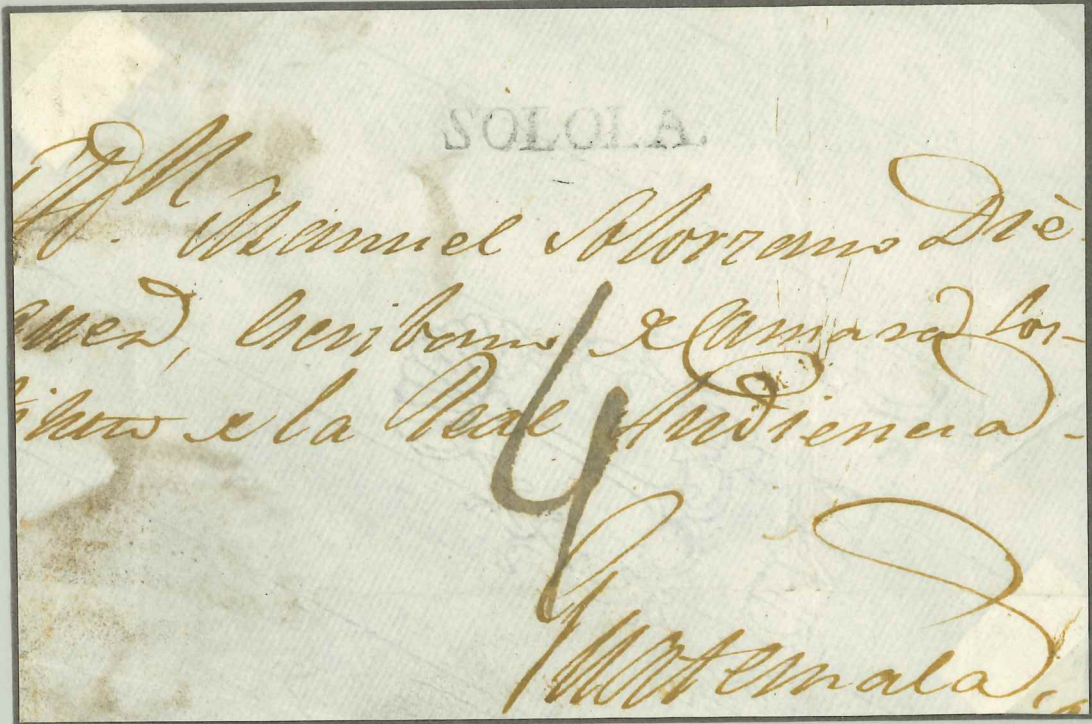 SOLOLA.
D.n Manuel Solorzano Diè
guez, Escribano de Camara Sos-
tituto de la Real Audiencia -
4
Guatemala.